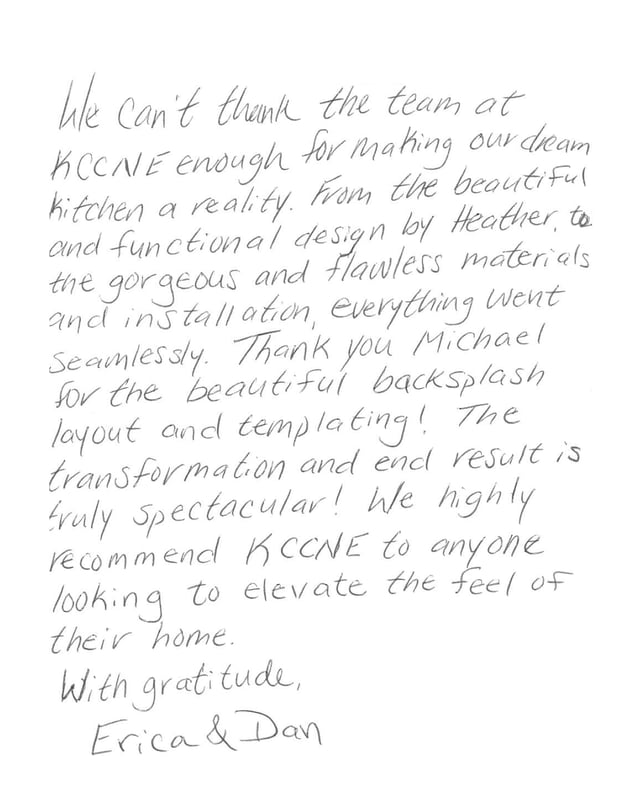 We can't thank the team at
KCCNE enough for making our dream
kitchen a reality. From the beautiful
and functional design by Heather, to
the gorgeous and flawless materials
and installation, everything went
seamlessly. Thank you Michael
for the beautiful backsplash
layout and templating! The
transformation and end result is
truly spectacular! We highly
recommend KCCNE to anyone
looking to elevate the feel of
their home.
With gratitude,
Erica & Dan